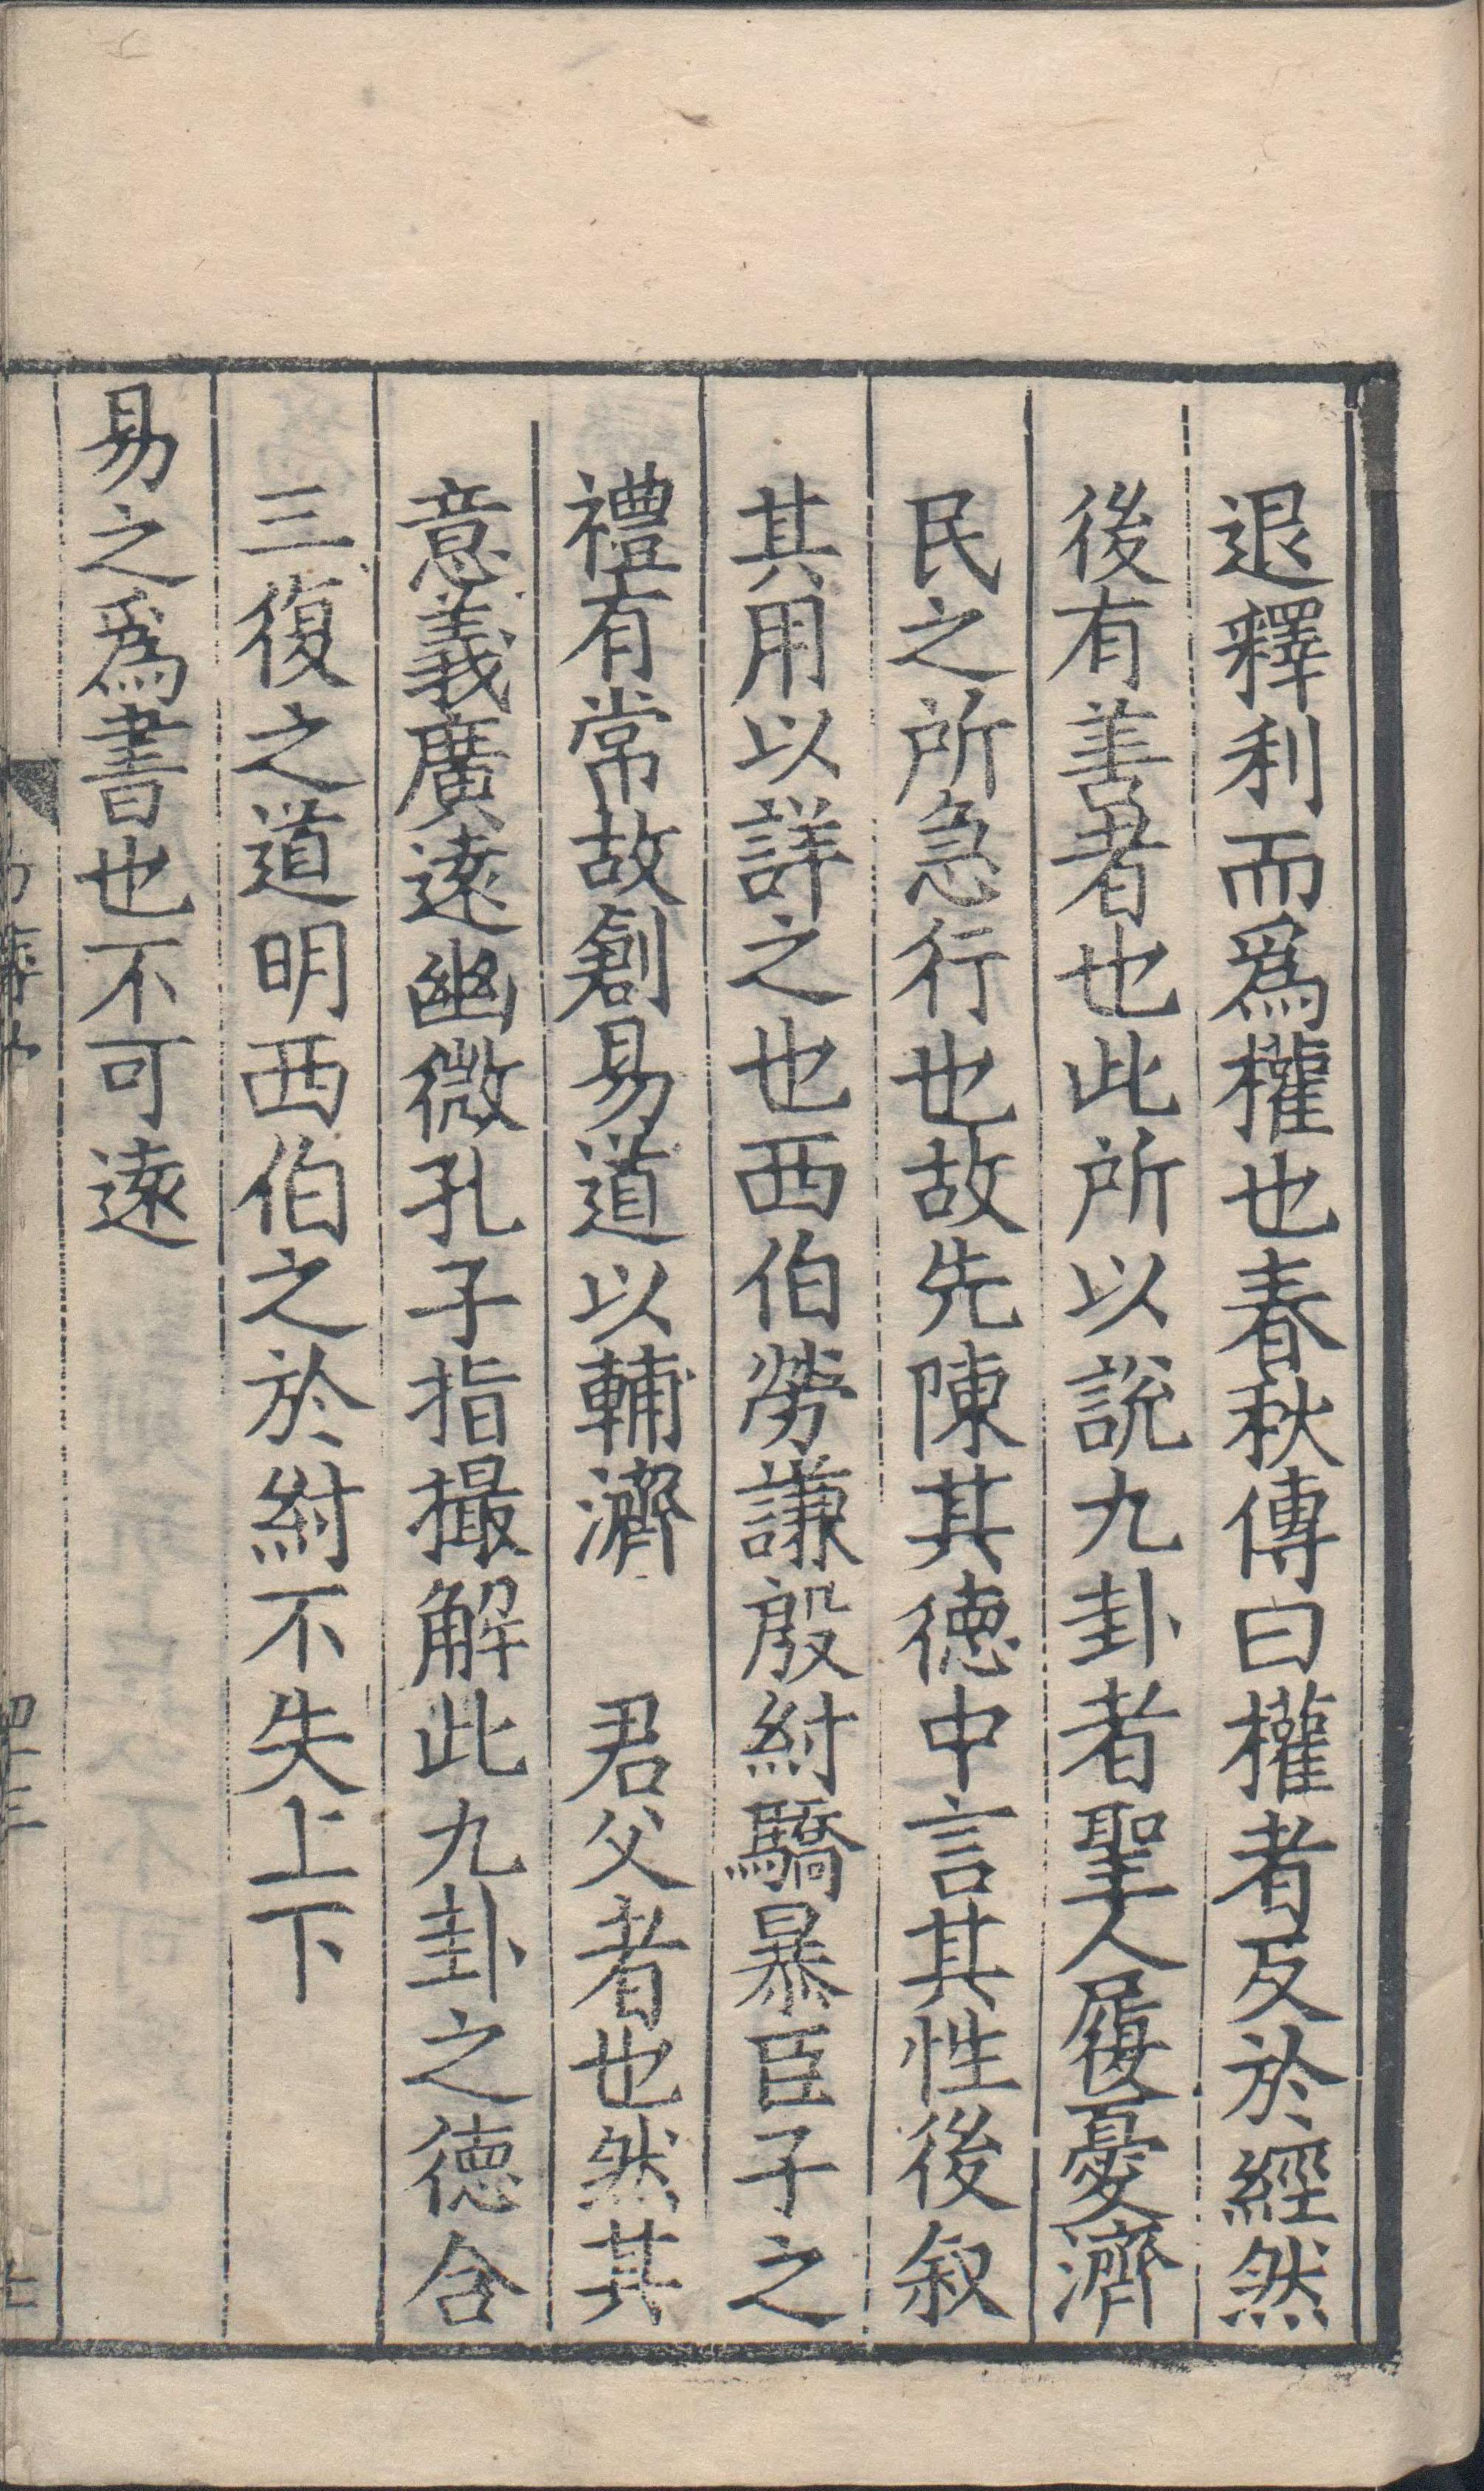 退釋利而爲權也春秋傳曰權者反於經然
後有善者也此所以說九卦者聖人履憂濟
民之所急行也故先陳其德中言其性後叙
其用以詳之也西伯勞謙殷紂驕暴臣子之
禮有常故創易道以輔濟　君父者也然其
意義廣遠幽微孔子指撮解此九卦之德合
三復之道明西伯之於紂不失上下
易之爲書也不可遠